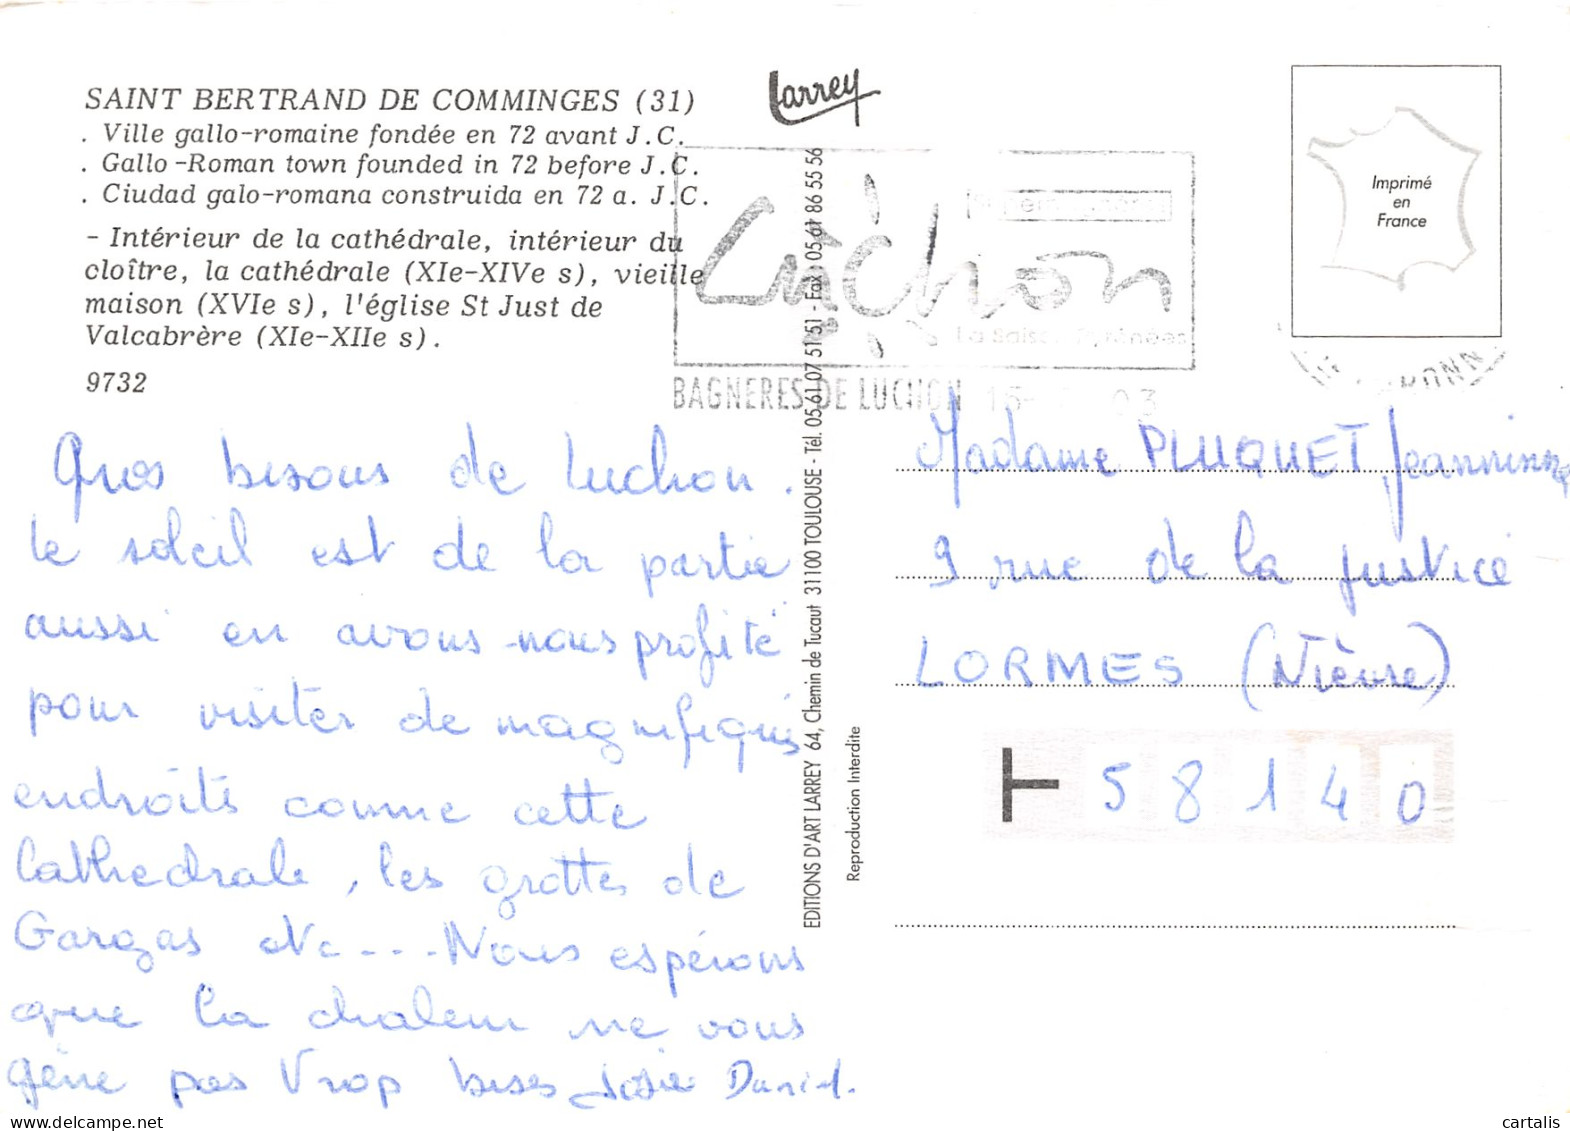 SAINT BERTRAND DE COMMINGES (31)
. Ville gallo-romaine fondée en 72 avant J.C.
. Gallo-Roman town founded in 72 before J.C.
. Ciudad galo-romana construida en 72 a. J.C.
- Intérieur de la cathédrale, intérieur du
cloître, la cathédrale (XIe-XIVe s), vieille
maison (XVIe s), l'église St Just de
Valcabrère (XIe-XIIe s).
9732
Larrey
Luchon
La Saison Pyrénées
BAGNERES DE LUCHON
Imprimé
en
France
EDITIONS D'ART LARREY 64, Chemin de Tucaut 31100 TOULOUSE - Tél. 05 61 07 51 51 - Fax : 05 61 86 55 56
Reproduction Interdite
Gros bisous de Luchon.
Le soleil est de la partie
aussi en avons-nous profité
pour visiter de magnifiques
endroits comme cette
Cathédrale, les grottes de
Gargas etc---. Nous espérons
que la chaleur ne vous
gêne pas trop bises Josie Daniel.
Madame PLUQUET Jeannine
9 rue de la justice
LORMES (Nièvre)
58140
cartalis
delcampe.net